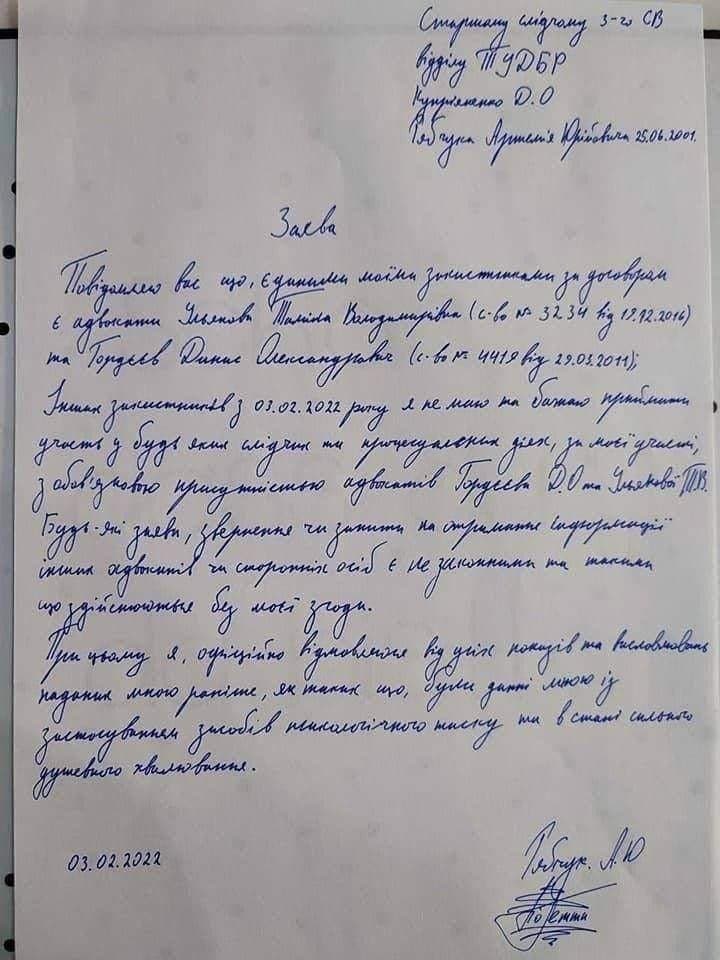 Старшому слідчому 3-го СВ
відділу ТУДБР
Купріяненко Д.О
Рябчука Артемія Юрійовича 25.06.2001.
Заява
Повідомляю вас що, єдиними моїми захистниками за договорам
є адвокати Ульякова Таміла Володимирівна (с-во № 3234 від 19.12.2016)
та Гордєєв Динис Олександрович (с-во № 4419 від 29.03.2011);
Інших захистників з 03.02.2022 року я не маю та бажаю приймати
участь у будь яких слідчих та процесуальних діях, за моєї участі,
з обов'язковою присутністью адвокатів Гордєєва Д.О та Ульякової Т.В.
Будь-які заяви, звернення чи запити на отримання інформації
інших адвокатів чи сторонніх осіб є не законними та такими
що здійснюються без моєї згоди.
При цьому я, офіційно відмовляюся від усіх показів та висловлювань
наданих мною раніше, як таких що, були данні мною із
застосуванням засобів психологічного тиску та в стані сильного
душевного хвилювання.
03.02.2022
Рябчук. А.Ю